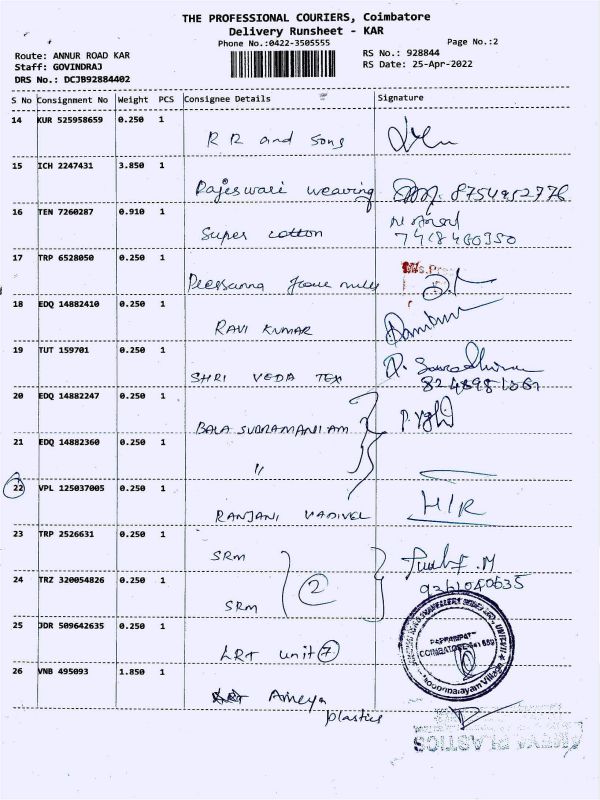 THE PROFESSIONAL COURIERS, Coimbatore
Delivery Runsheet - KAR
Phone No.:0422-3505555
Page No.:2
Route: ANNUR ROAD KAR
RS No.: 928844
Staff: GOVINDRAJ
RS Date: 25-Apr-2022
DRS No.: DCJB92884402
S No Consignment No Weight PCS Consignee Details Signature
14 KUR 525958659 0.250 1
R R and Sons
15 ICH 2247431 3.850 1
Rajeswari weaving
16 TEN 7260287 0.910 1
Super cotton 7418460350
17 TRP 6528050 0.250 1
18 EDQ 14882410 0.250 1
RAVI KUMAR
19 TUT 159701 0.250 1
SHRI VEDA TEX
20 EDQ 14882247 0.250 1
BALA SUBRAMANIAM
21 EDQ 14882360 0.250 1
"
22 VPL 125037005 0.250 1
RANJANI VADIVEL H/R
23 TRP 2526631 0.250 1
SRM
24 TRZ 320054826 0.250 1
2
SRM
25 JDR 509642635 0.250 1
LRT unit 7
26 VNB 495093 1.850 1
Ameya
plastics
COIMBATORE
PLASTICS